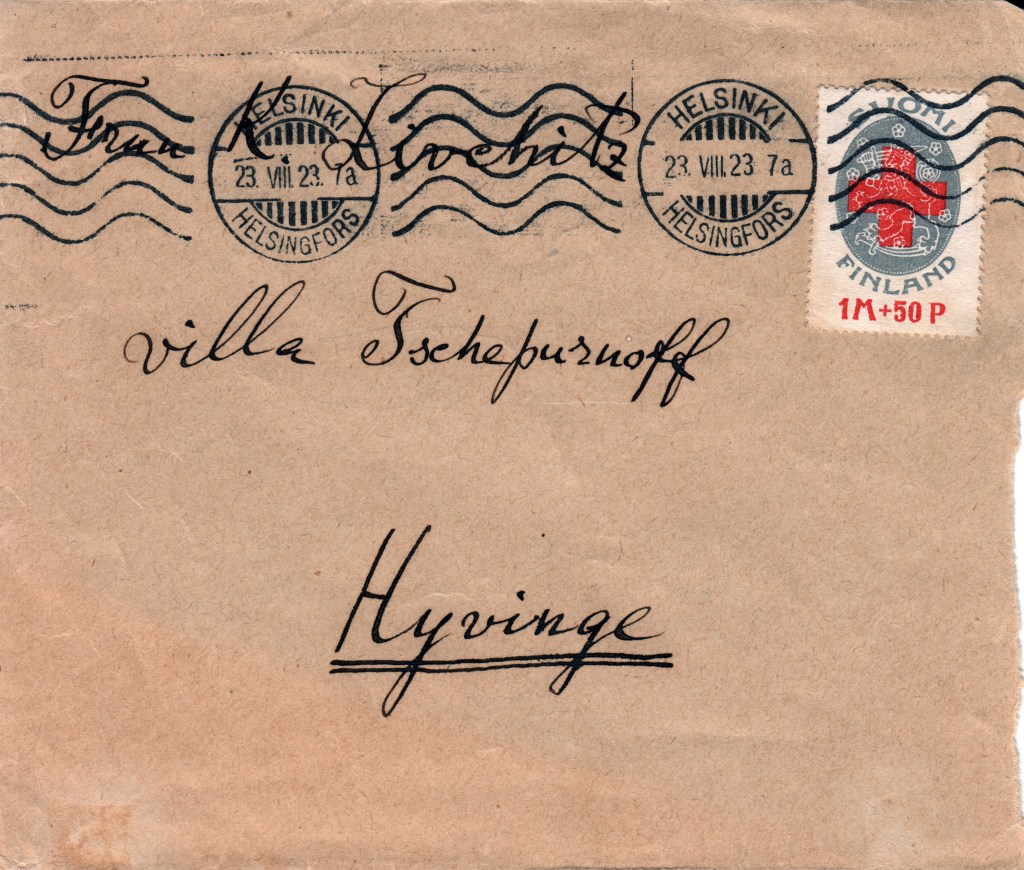 Frau K. Livchitz
HELSINKI
23. VIII. 23. 7a
HELSINGFORS
HELSINKI
23. VIII. 23 7a
HELSINGFORS
SUOMI
FINLAND
1M+50 P
villa Tschepurnoff
Hyvinge